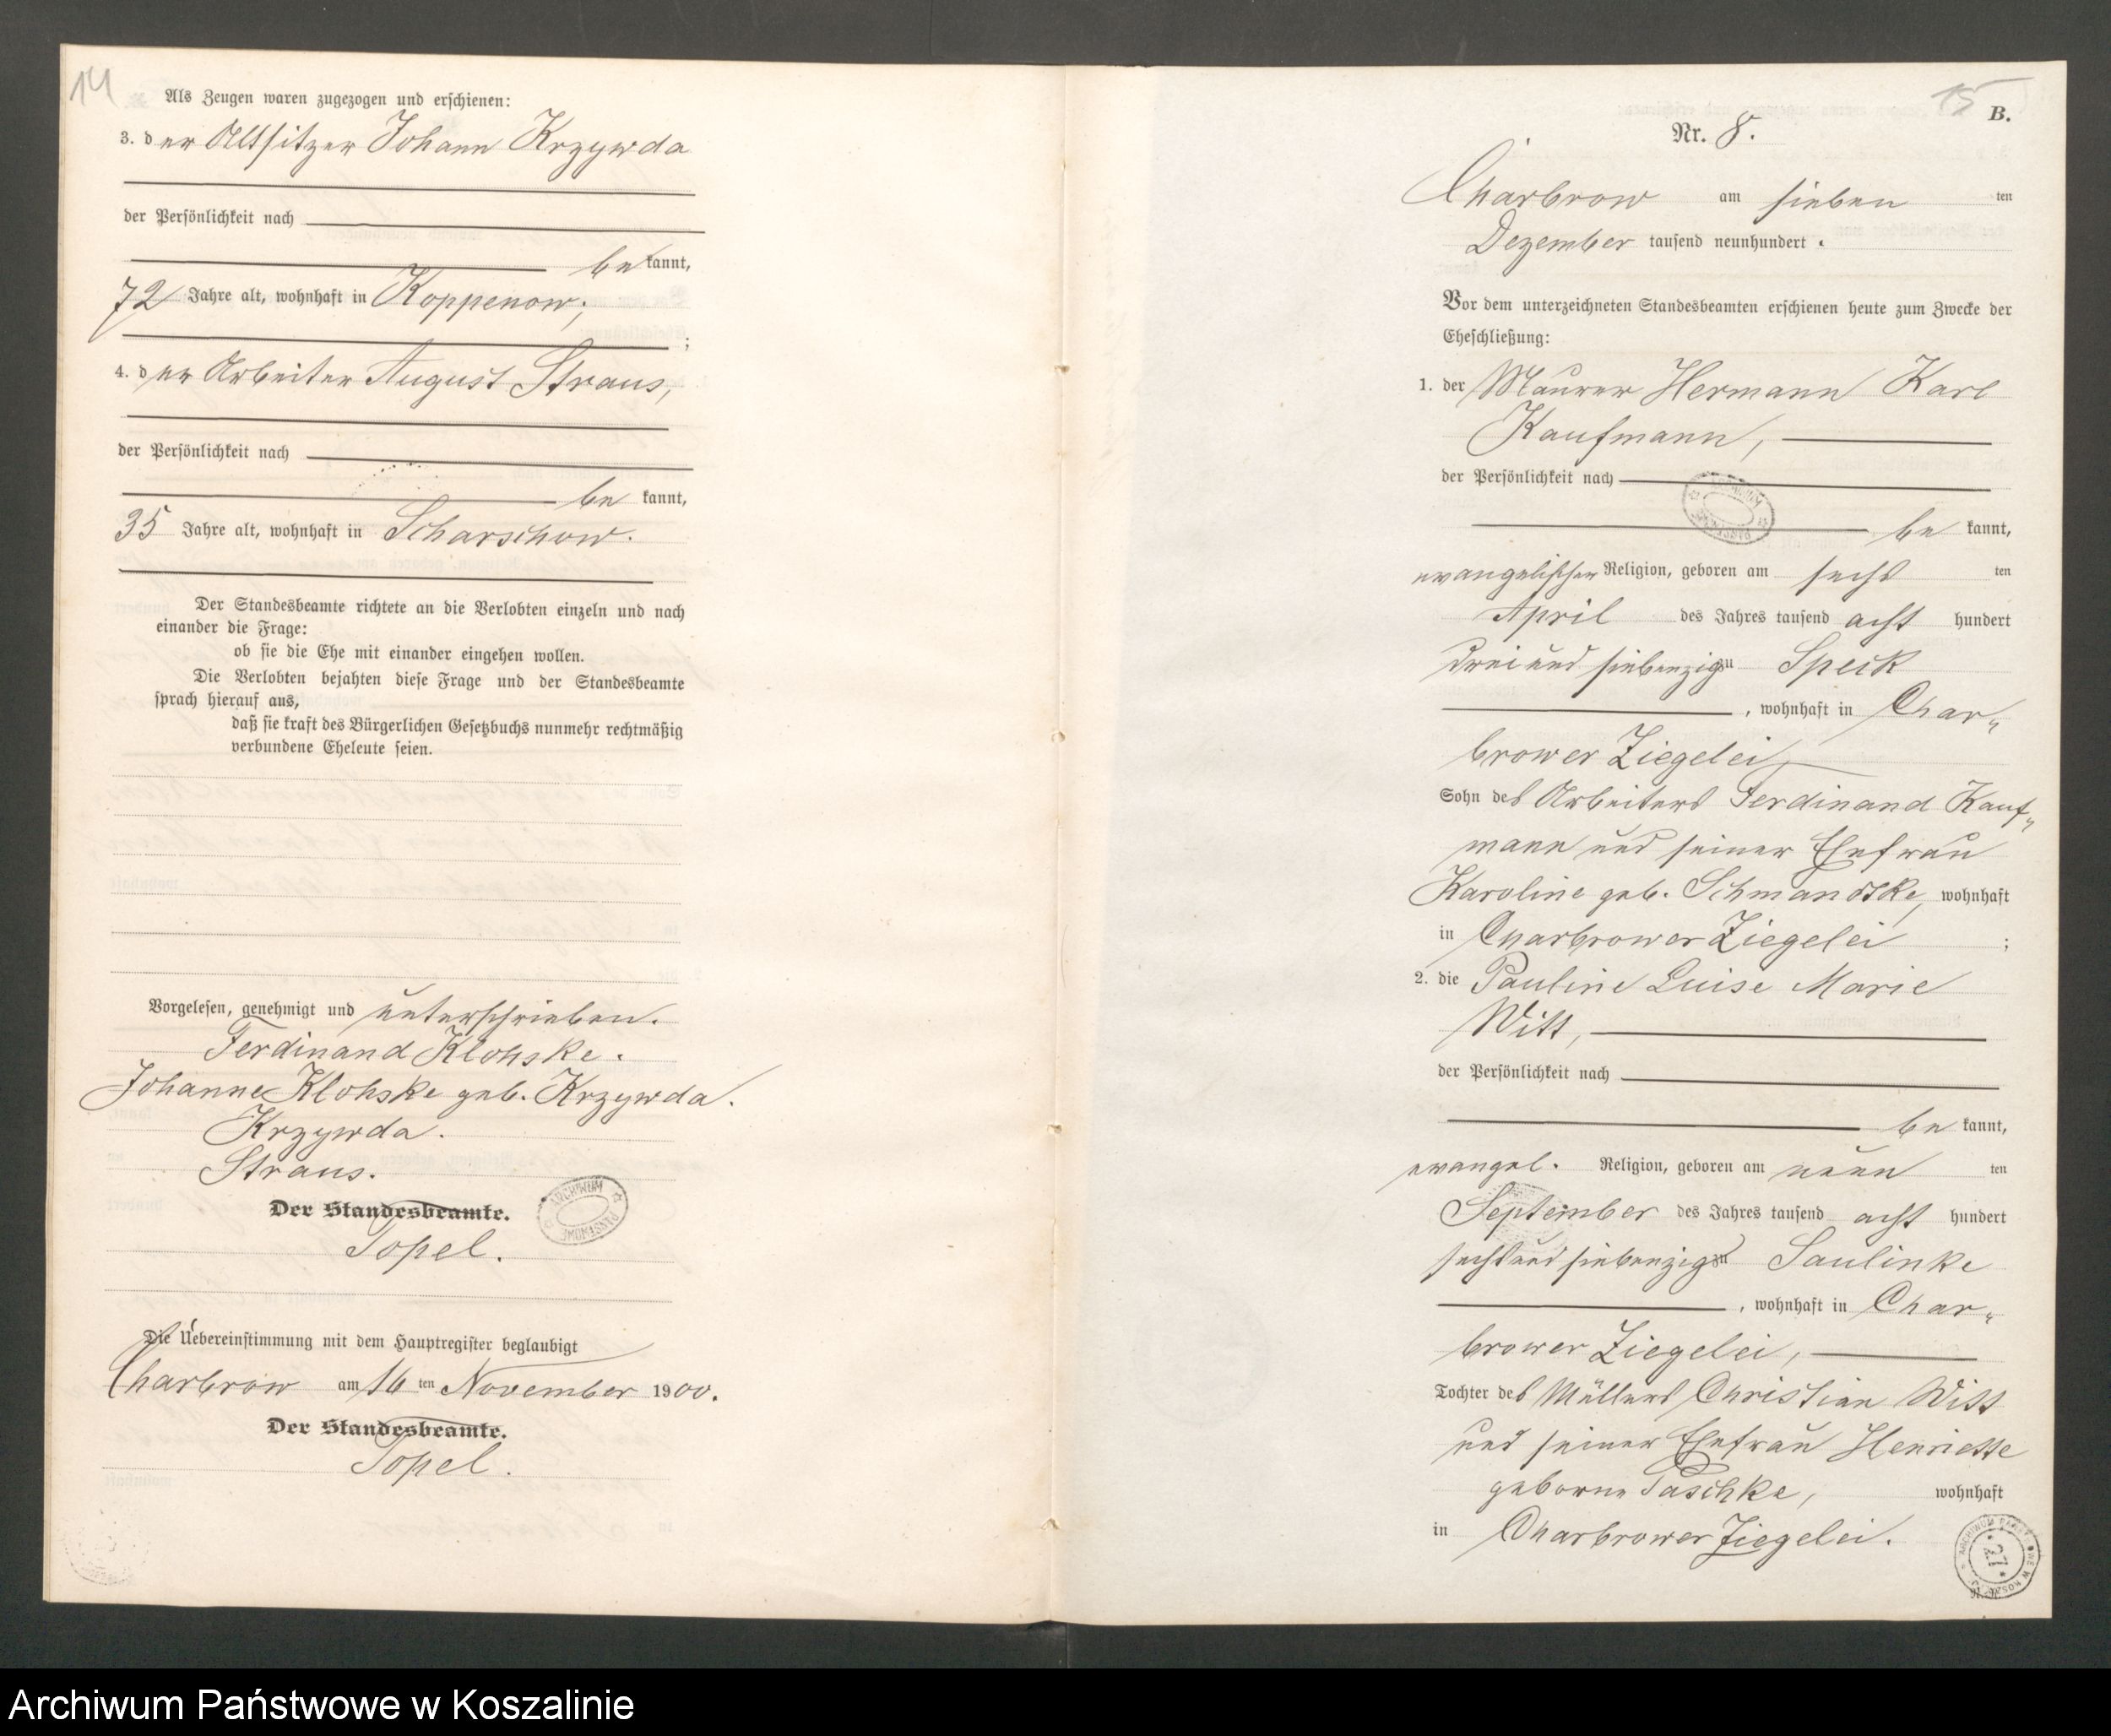 14
Als Zeugen waren zugezogen und erschienen:
3. der Altsitzer Johann Krzywda
der Persönlichkeit nach
be kannt,
72 Jahre alt, wohnhaft in Koppenow;
;
4. der Arbeiter August Straus,
der Persönlichkeit nach
be kannt,
35 Jahre alt, wohnhaft in Scharschow.
Der Standesbeamte richtete an die Verlobten einzeln und nach
einander die Frage:
ob sie die Ehe mit einander eingehen wollen.
Die Verlobten bejahten diese Frage und der Standesbeamte
sprach hierauf aus,
daß sie kraft des Bürgerlichen Gesetzbuchs nunmehr rechtmäßig
verbundene Eheleute seien.
Vorgelesen, genehmigt und unterschrieben.
Ferdinand Klohske.
Johanne Klohske geb. Krzywda.
Krzywda.
Straus.
Der Standesbeamte.
Topel.
ARCHIWUM PAŃSTWOWE
Die Uebereinstimmung mit dem Hauptregister beglaubigt
Charbrow am 16 ten November 1900.
Der Standesbeamte.
Topel.
15
B.
Nr. 8.
Charbrow am sieben ten
Dezember tausend neunhundert .
Vor dem unterzeichneten Standesbeamten erschienen heute zum Zwecke der
Eheschließung:
1. der Maurer Hermann Karl
Kaufmann,
der Persönlichkeit nach
ARCHIWUM PAŃSTWOWE
be kannt,
evangelischer Religion, geboren am sechs ten
April des Jahres tausend acht hundert
drei und siebenzig zu Speck
, wohnhaft in Char-
brower Ziegelei,
Sohn des Arbeiters Ferdinand Kauf-
mann und seiner Ehefrau
Karoline geb. Schmandtke, wohnhaft
in Charbrower Ziegelei ;
2. die Pauline Luise Marie
Witt,
der Persönlichkeit nach
be kannt,
evangel. Religion, geboren am neun ten
September des Jahres tausend acht hundert
sechs und siebenzig zu Saulinke
, wohnhaft in Char-
brower Ziegelei,
Tochter des Müllers Christian Witt
und seiner Ehefrau Henriette
geborne Paschke, wohnhaft
in Charbrower Ziegelei.
27
Archiwum Państwowe w Koszalinie